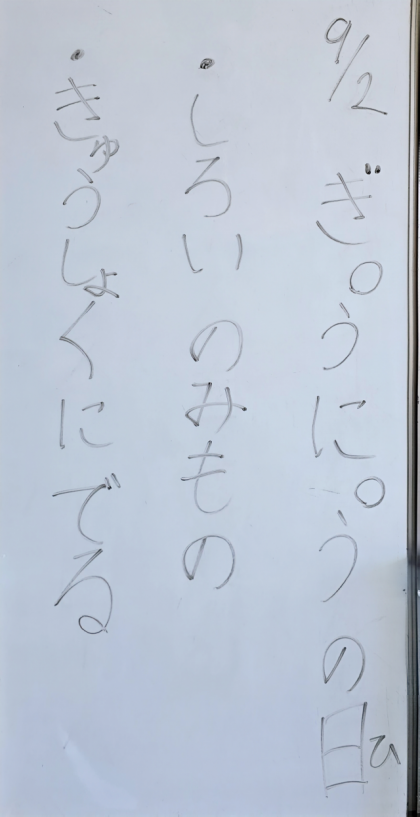 9/2 ぎ○うに○うの日ひ
・しろいのみもの
・きゅうしょくにでる